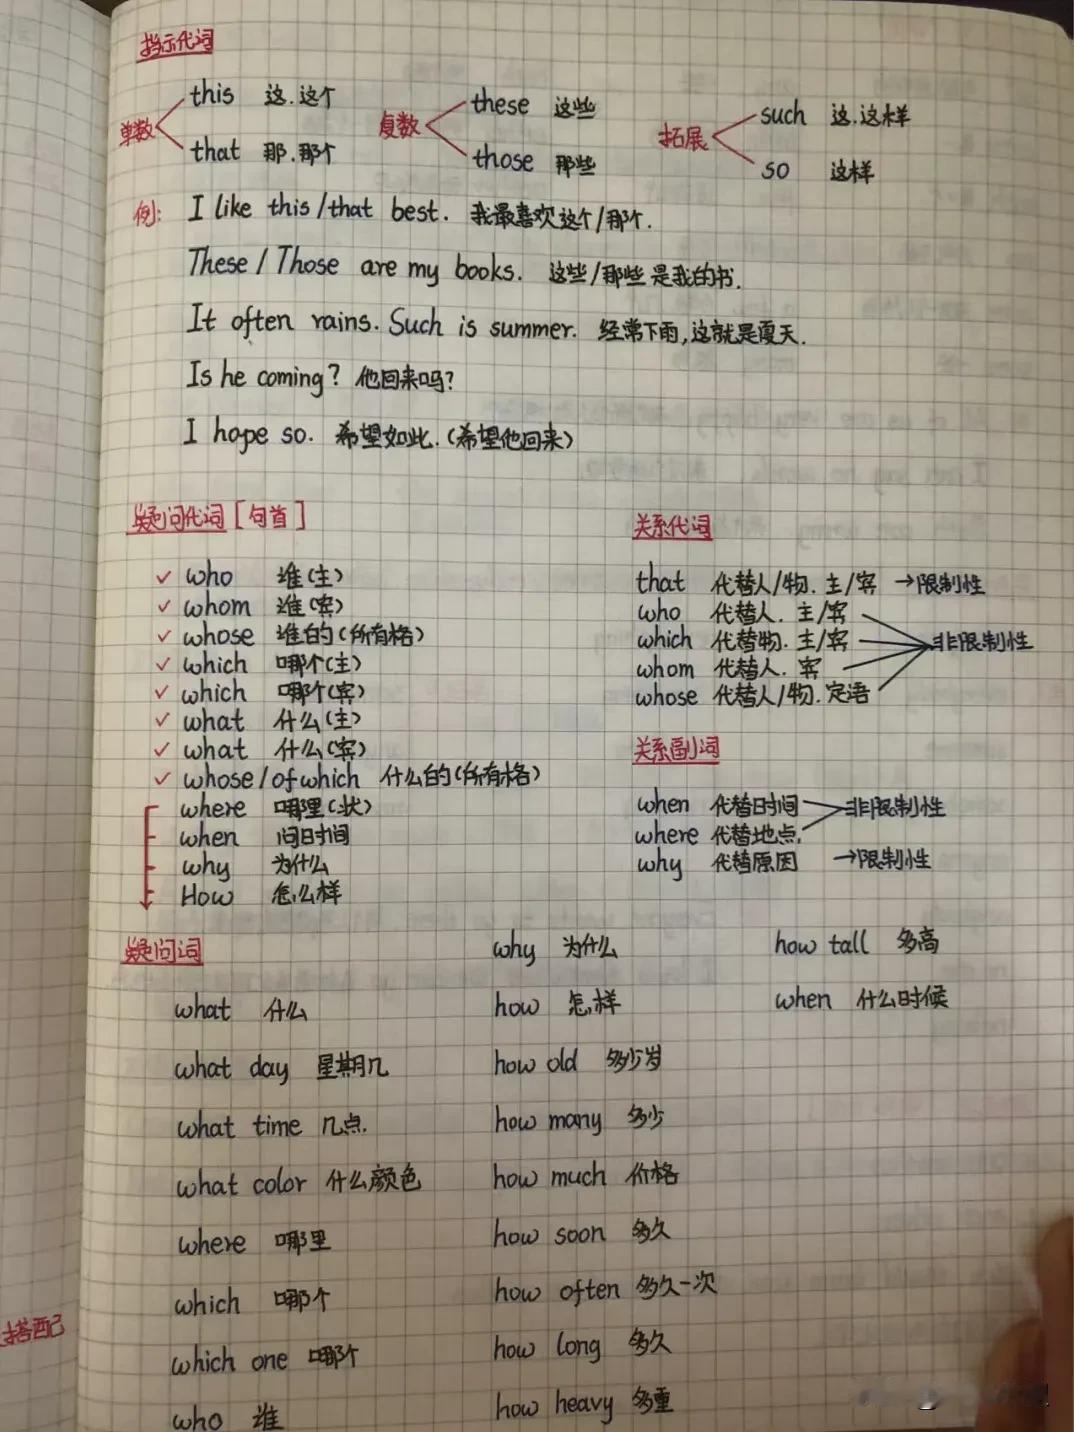 指示代词
单数 this 这.这个 that 那.那个
复数 these 这些 those 那些
拓展 such 这.这样 so 这样
例: I like this/that best. 我最喜欢这个/那个.
These / Those are my books. 这些/那些是我的书.
It often rains. Such is summer. 经常下雨,这就是夏天.
Is he coming? 他回来吗?
I hope so. 希望如此.(希望他回来)
疑问代词[句首]
✓ who 谁(主)
✓ whom 谁(宾)
✓ whose 谁的(所有格)
✓ which 哪个(主)
✓ which 哪个(宾)
✓ what 什么(主)
✓ what 什么(宾)
✓ whose/of which 什么的(所有格)
where 哪里(状)
when 问时间
why 为什么
How 怎么样
关系代词
that 代替人/物.主/宾 →限制性
who 代替人.主/宾
which 代替物.主/宾 非限制性
whom 代替人.宾
whose 代替人/物.定语
关系副词
when 代替时间 非限制性
where 代替地点.
why 代替原因 →限制性
疑问词
what 什么
what day 星期几
what time 几点.
what color 什么颜色
where 哪里
which 哪个
which one 哪个
who 谁
why 为什么
how 怎样
how old 多少岁
how many 多少
how much 价格
how soon 多久
how often 多久一次
how long 多久
how heavy 多重
how tall 多高
when 什么时候
搭配